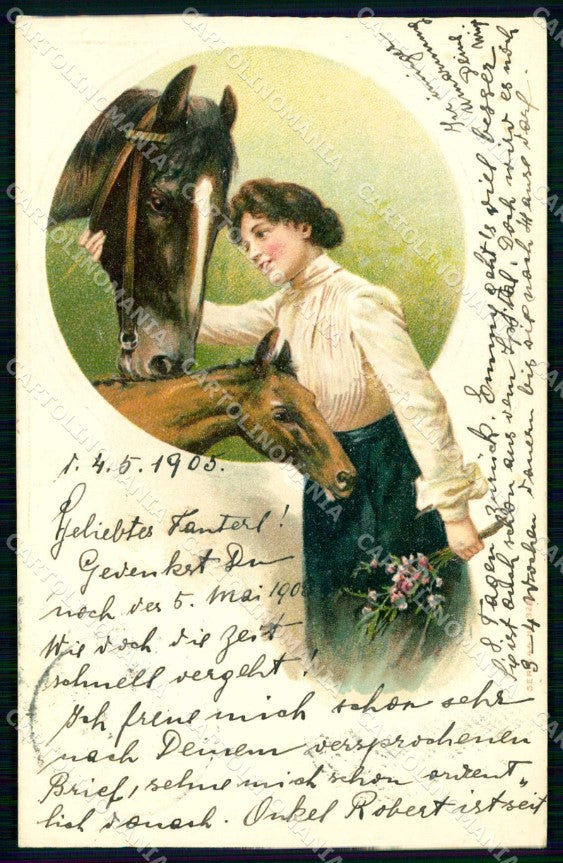 d. 4.5.1905.
Geliebtes Tanterl!
Gedenkst Du
noch des 5. Mai 190
Wie doch die Zeit
schnell vergeht!
Ich freue mich schon sehr
nach Deinem versprochenen
Brief, sehne mich schon ordent„
lich danach. Onkel Robert ist seit
8 Tagen zurück. Emmy geht es viel besser
sie ist auch schon aus dem Spital. Doch wird es noch
3-4 Wochen dauern bis sie nach Hause darf.
inniger
Umarmung
Deine
CARTOLINOMANIA